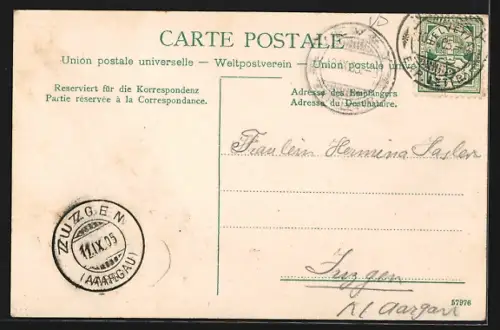 CARTE POSTALE
Union postale universelle — Weltpostverein — Union postale
Reserviert für die Korrespondenz
Partie réservée à la Correspondance.
Adresse des Empfängers
Adresse du Destinataire.
HELVETIA
Fräulein Hermina Hasler
ZUZGEN
11.IX.05
(AARGAU)
Zuzgen
Kt Aargau
57976